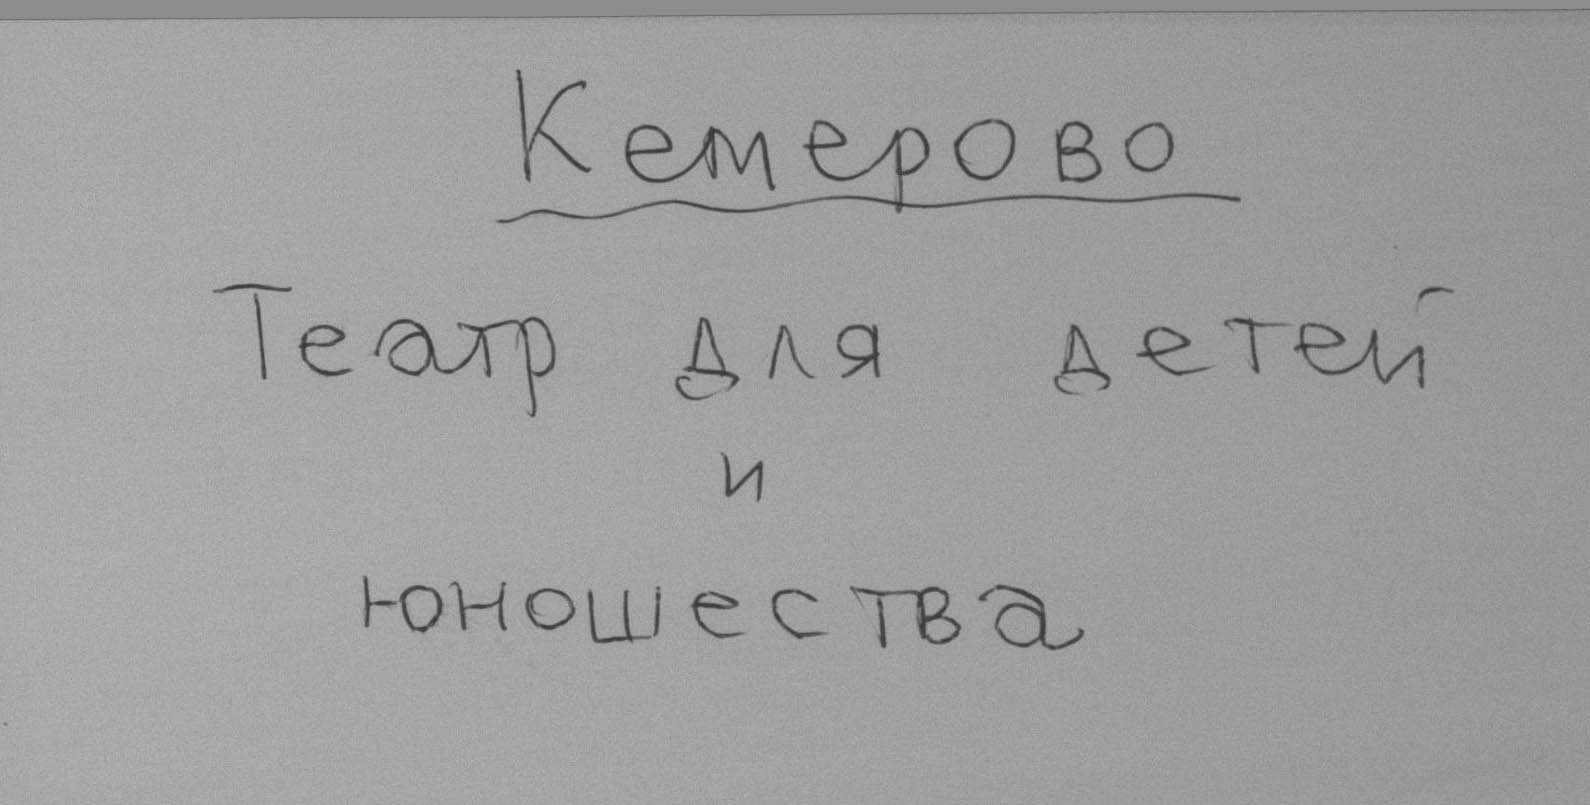 Кемерово
Театр для детей
и
юношества